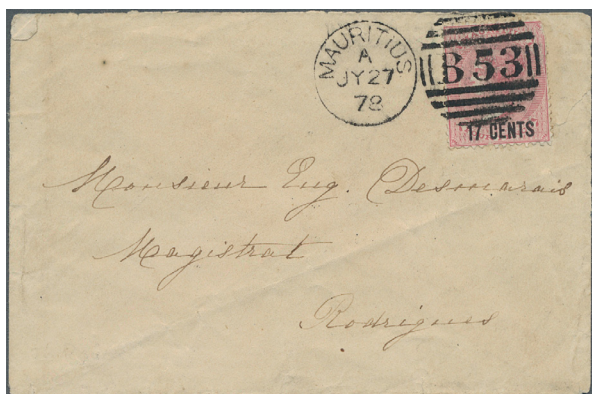 MAURITIUS
A
JY 27
78
B53
17 CENTS
Monsieur Eug. Desmarais
Magistrat
Rodrigues